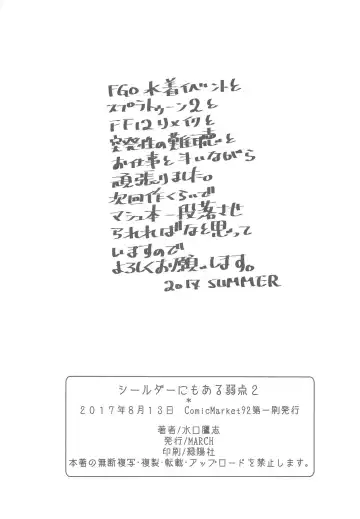 FGO水着イベントと
スプラトゥーン2と
FF12リメイクと
突発性の難聴と
お仕事と戦いながら
頑張りました。
次回作くらいで
マシュ本一段落させ
られればなと思って
いますので
よろしくお願いします。
2017 SUMMER
シールダーにもある弱点2
*
2017年8月13日 ComicMarket92第一刷発行
著者/水口鷹志
発行/MARCH
印刷/緑陽社
本書の無断複写・複製・転載・アップロードを禁止します。